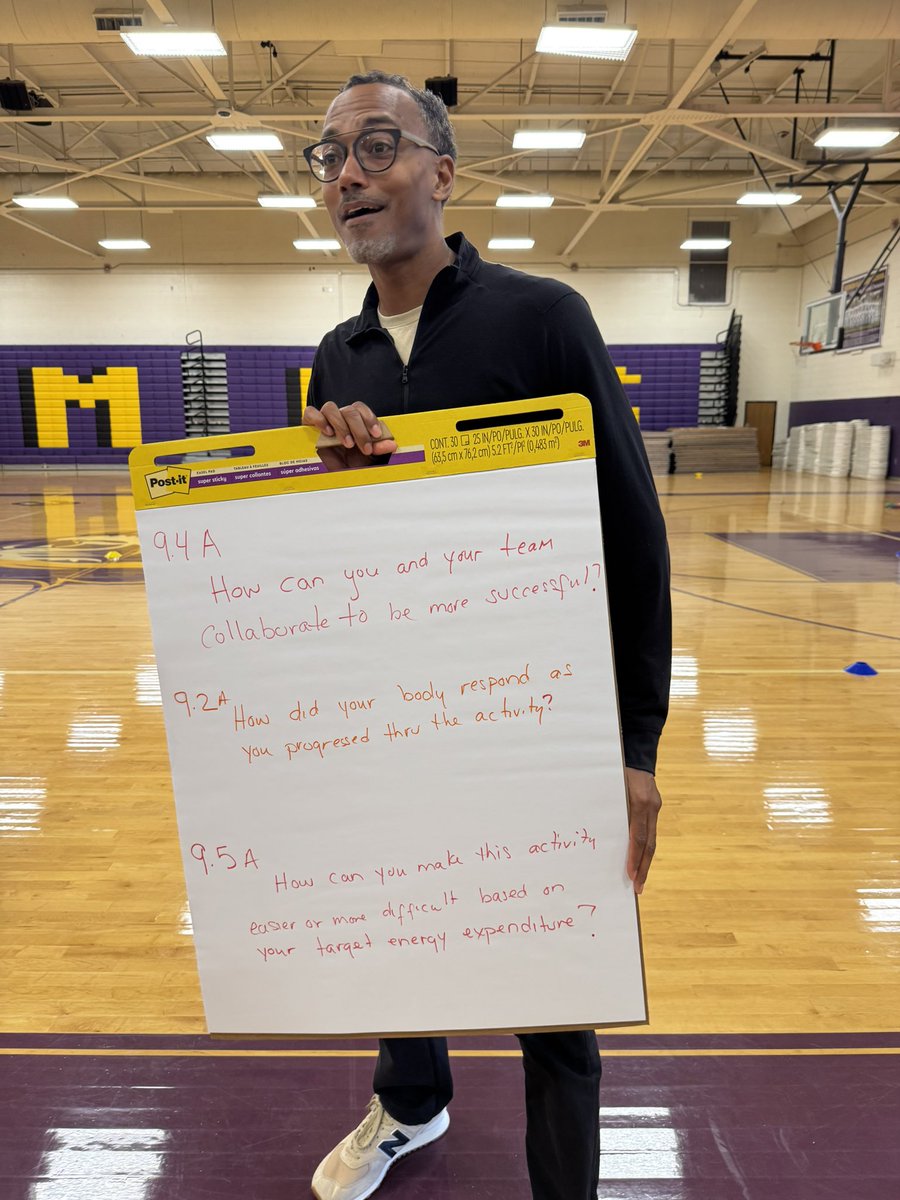 M
Post-it
EASEL PAD
super sticky
TABLEAU A FEUILLES
super collantes
BLOC DE HOJAS
súper adhesivas
CONT. 30 25 IN/PO/PULG. X 30 IN/PO/PULG.
(63,5 cm x 76,2 cm) 5.2 FT²/PI² (0,483 m²)
3M
9.4 A
How can you and your team
collaborate to be more successful?
9.2A
How did your body respond as
you progressed thru the activity?
9.5 A
How can you make this activity
easier or more difficult based on
your target energy expenditure?
N